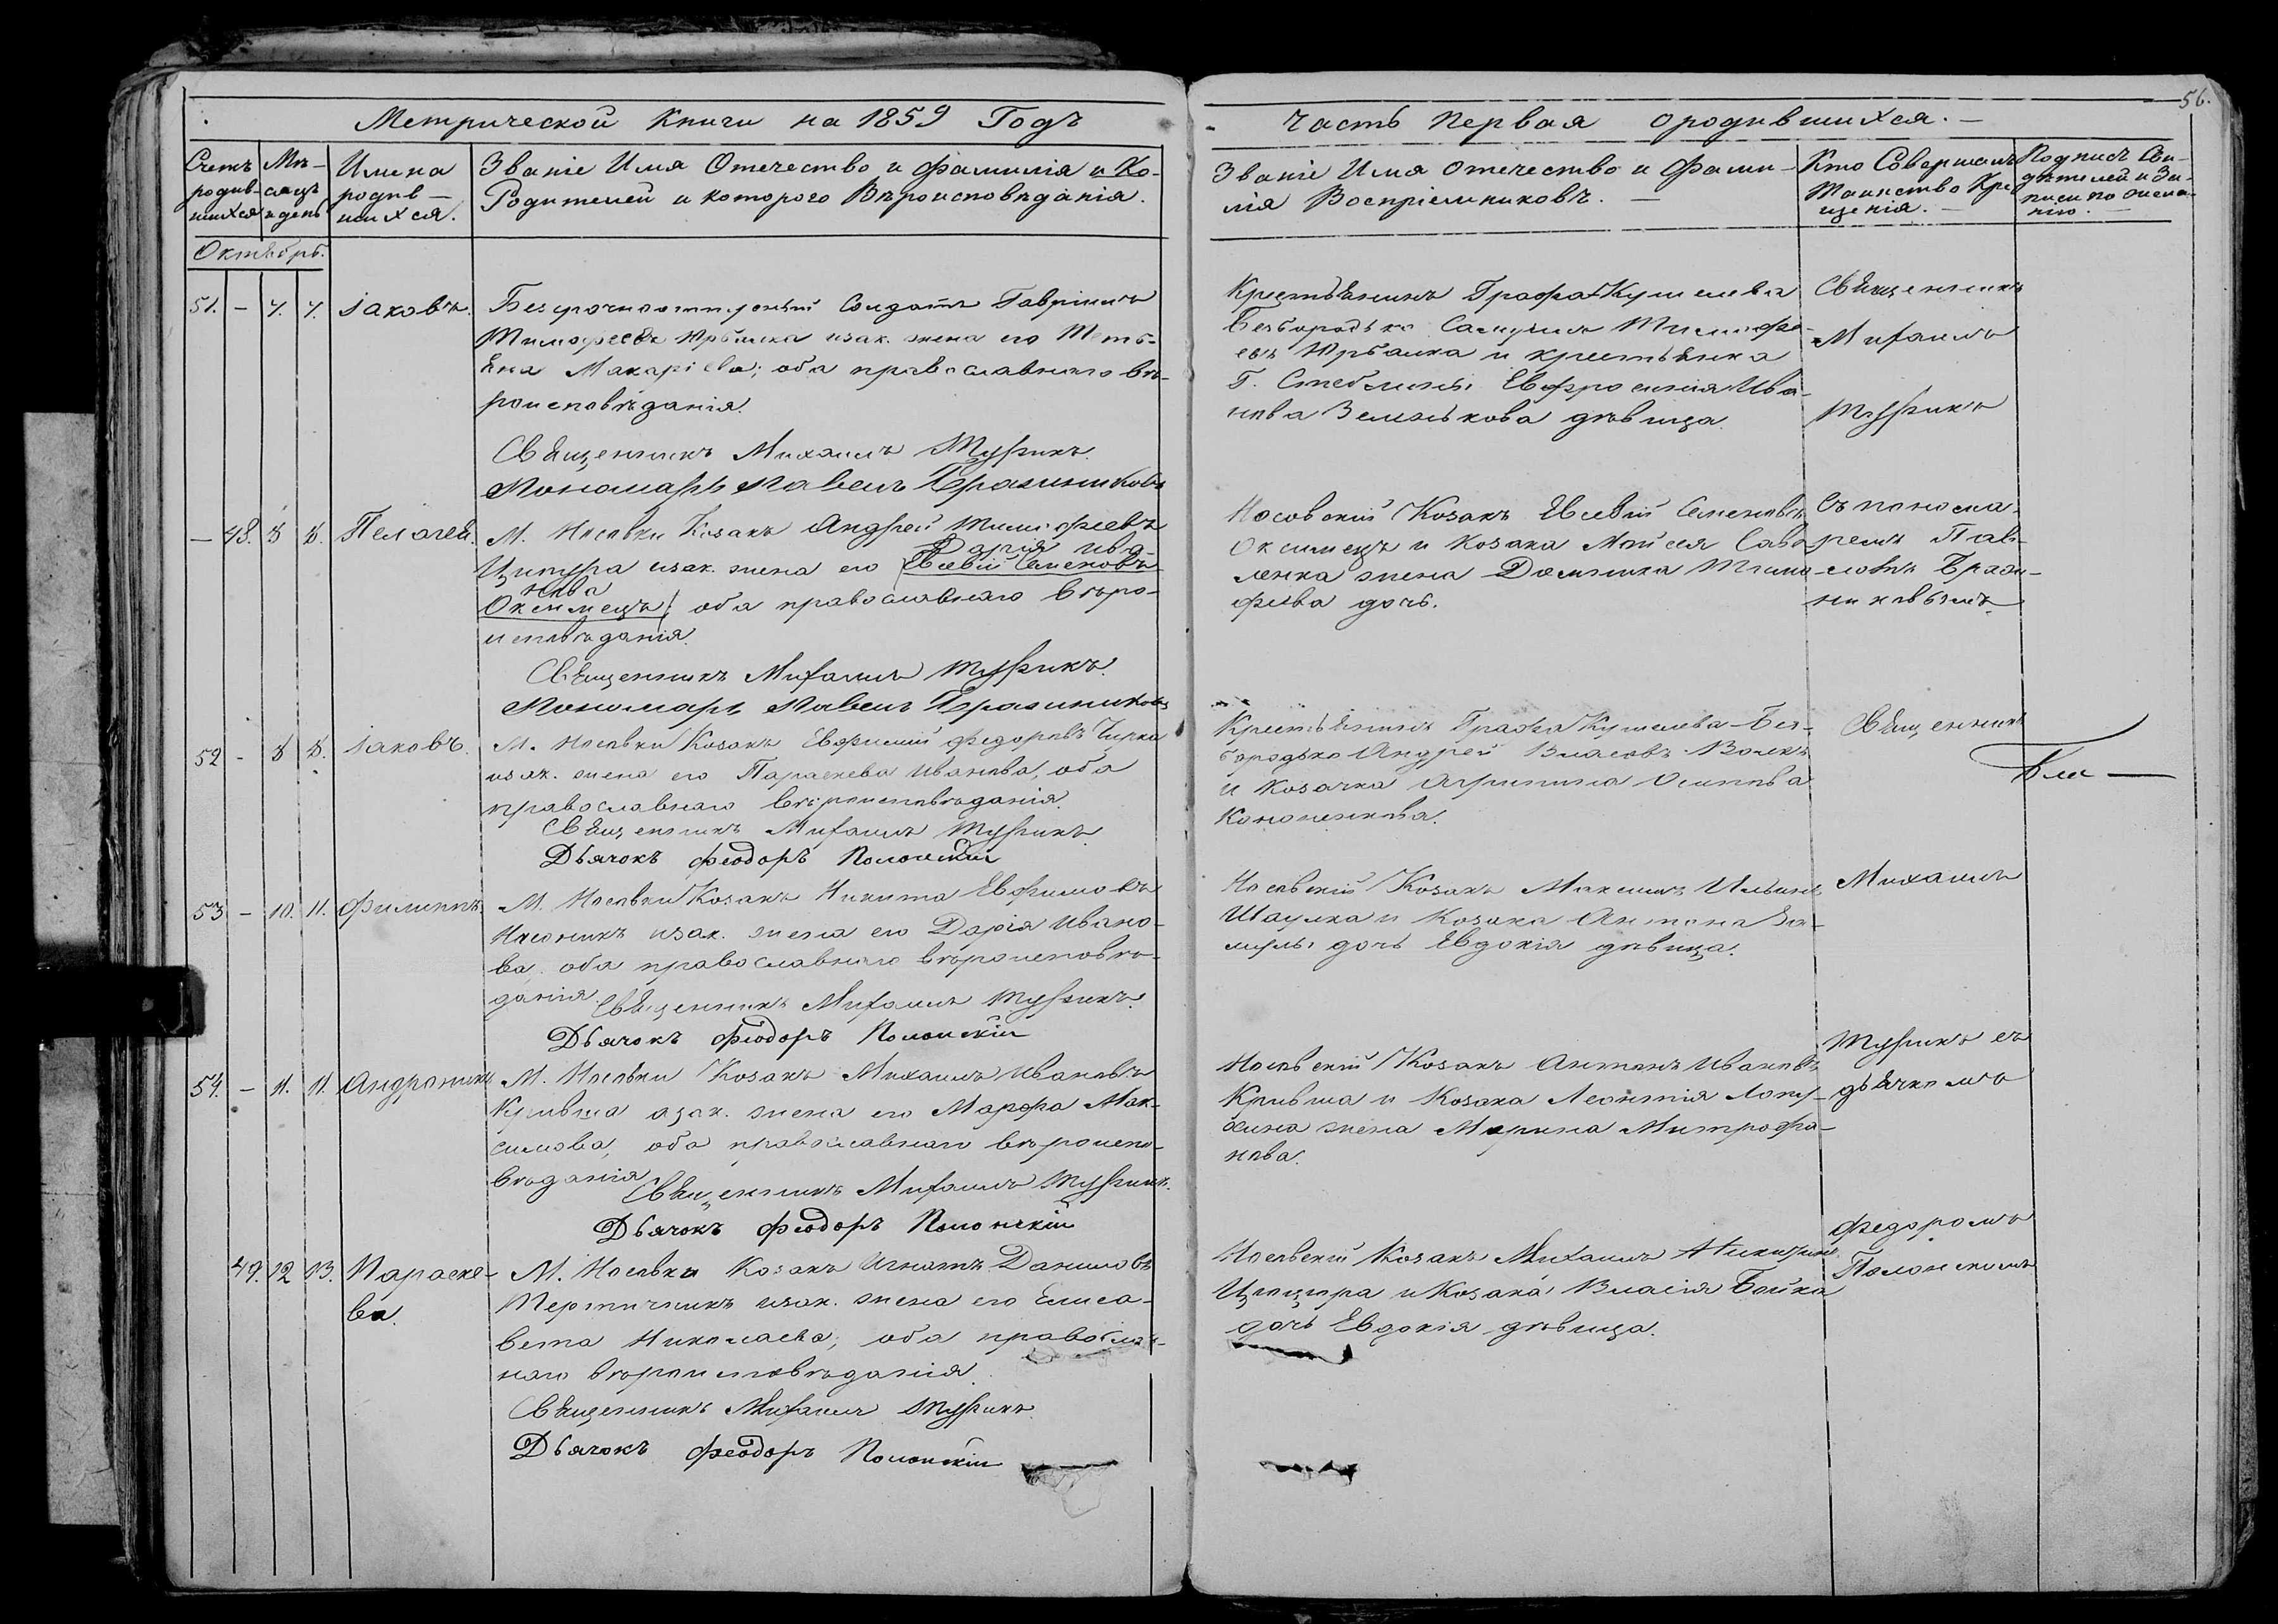 56.
Метрической Книги на 1859 Годъ
Часть Первая о родившихся. —
Счетъ родив- шихся
Мѣ- сяцъ и день
Имена родив- шихся.
Званіе Имя Отечество и Фамилія
Родителей и которого Вѣроисповѣданія.
Званіе Имя Отечество и Фами-
лія Воспріемниковъ. —
Кто Совершалъ
Таинство Кре
щенія. —
Подпись Сви-
дѣтелей
Октябрь.
51. — 7. 7. Іаковъ.
Солдатъ Гавріилъ
Тимофеевъ Юрбалка изак. жена его Тать-
яна Макаріева; оба православнаго вѣ-
роисповѣданія.
Священникъ Михаилъ Турикъ
Пономарь Павелъ
Крестьянинъ Графа Кушелева
Безбородька Самуилъ Тимофе-
евъ Юрбалка и крестьянка
Г. Ефросинія Ива-
нова дѣвица.
Священникъ
Михаилъ
Турикъ
— 48. 8 8. Пелагея.
М. Носовки Козакъ Андрей Тимофеевъ
Дарія Ива-
Цицура изак. жена его Евсевій Семеновъ
нова
Оксимецъ; оба православнаго вѣро-
исповѣданія.
Священникъ Михаилъ Турикъ.
Пономарь Павелъ
Носовскій Козакъ Евсевій Семеновъ
Оксимецъ и Козака Мойсея Сав
ленка жена Домника Тимо-
феева дочь.
Съ понома-
ремъ Пав-
ломъ
52 - 8 8. Іаковъ.
М. Носовки Козакъ Евфимій Федоровъ
изак. жена его Параскева Иванова, оба
православнаго вѣроисповѣданія.
Священникъ Михаилъ Турикъ
Дьячокъ Феодоръ Полонскій
Крестьянинъ Графа Кушелева-Без-
бородька Андрей Власовъ Волкъ
и Козачка Агрипина Осипова
Кононенкова.
Священникъ
53 — 10. 11. Филиппъ.
М. Носовки Козакъ Никита Евфимовъ
изак. жена его Дарія Ивано-
ва. оба православнаго вѣроисповѣ-
данія.
Священникъ Михаилъ Турикъ.
Дьячокъ Феодоръ Полонскій
Носовскій Козакъ Максимъ Ильинъ
Шаулка и Козака Антона За-
дочь Евдокія дѣвица.
Михаилъ
54. — 11. 11. Андроникъ
М. Носовки Козакъ Михаилъ Ивановъ
Кривша изак. жена его Марфа Мак-
симова, оба православнаго вѣроиспо-
вѣданія
Священникъ Михаилъ Турикъ.
Дьячокъ Феодоръ Полонскій
Носовскій Козакъ Антонъ Ивановъ
Кривша и Козака Леонтія Лопу-
хина жена Марина Митрофа-
нова.
Турикъ съ
дьячкомъ
49. 12 13. Параске-
ва.
М. Носовки Козакъ Игнатъ Даниловъ
изак. жена его Елиса-
вета Николаева; оба православ-
наго вѣроисповѣданія.
Священникъ Михаилъ Турикъ
Дьячокъ Феодоръ Полонскій
Носовскій Козакъ Михаилъ Никитинъ
Цицура и Козака Власія Бойка
дочь Евдокія дѣвица.
Федоромъ
Полонскимъ